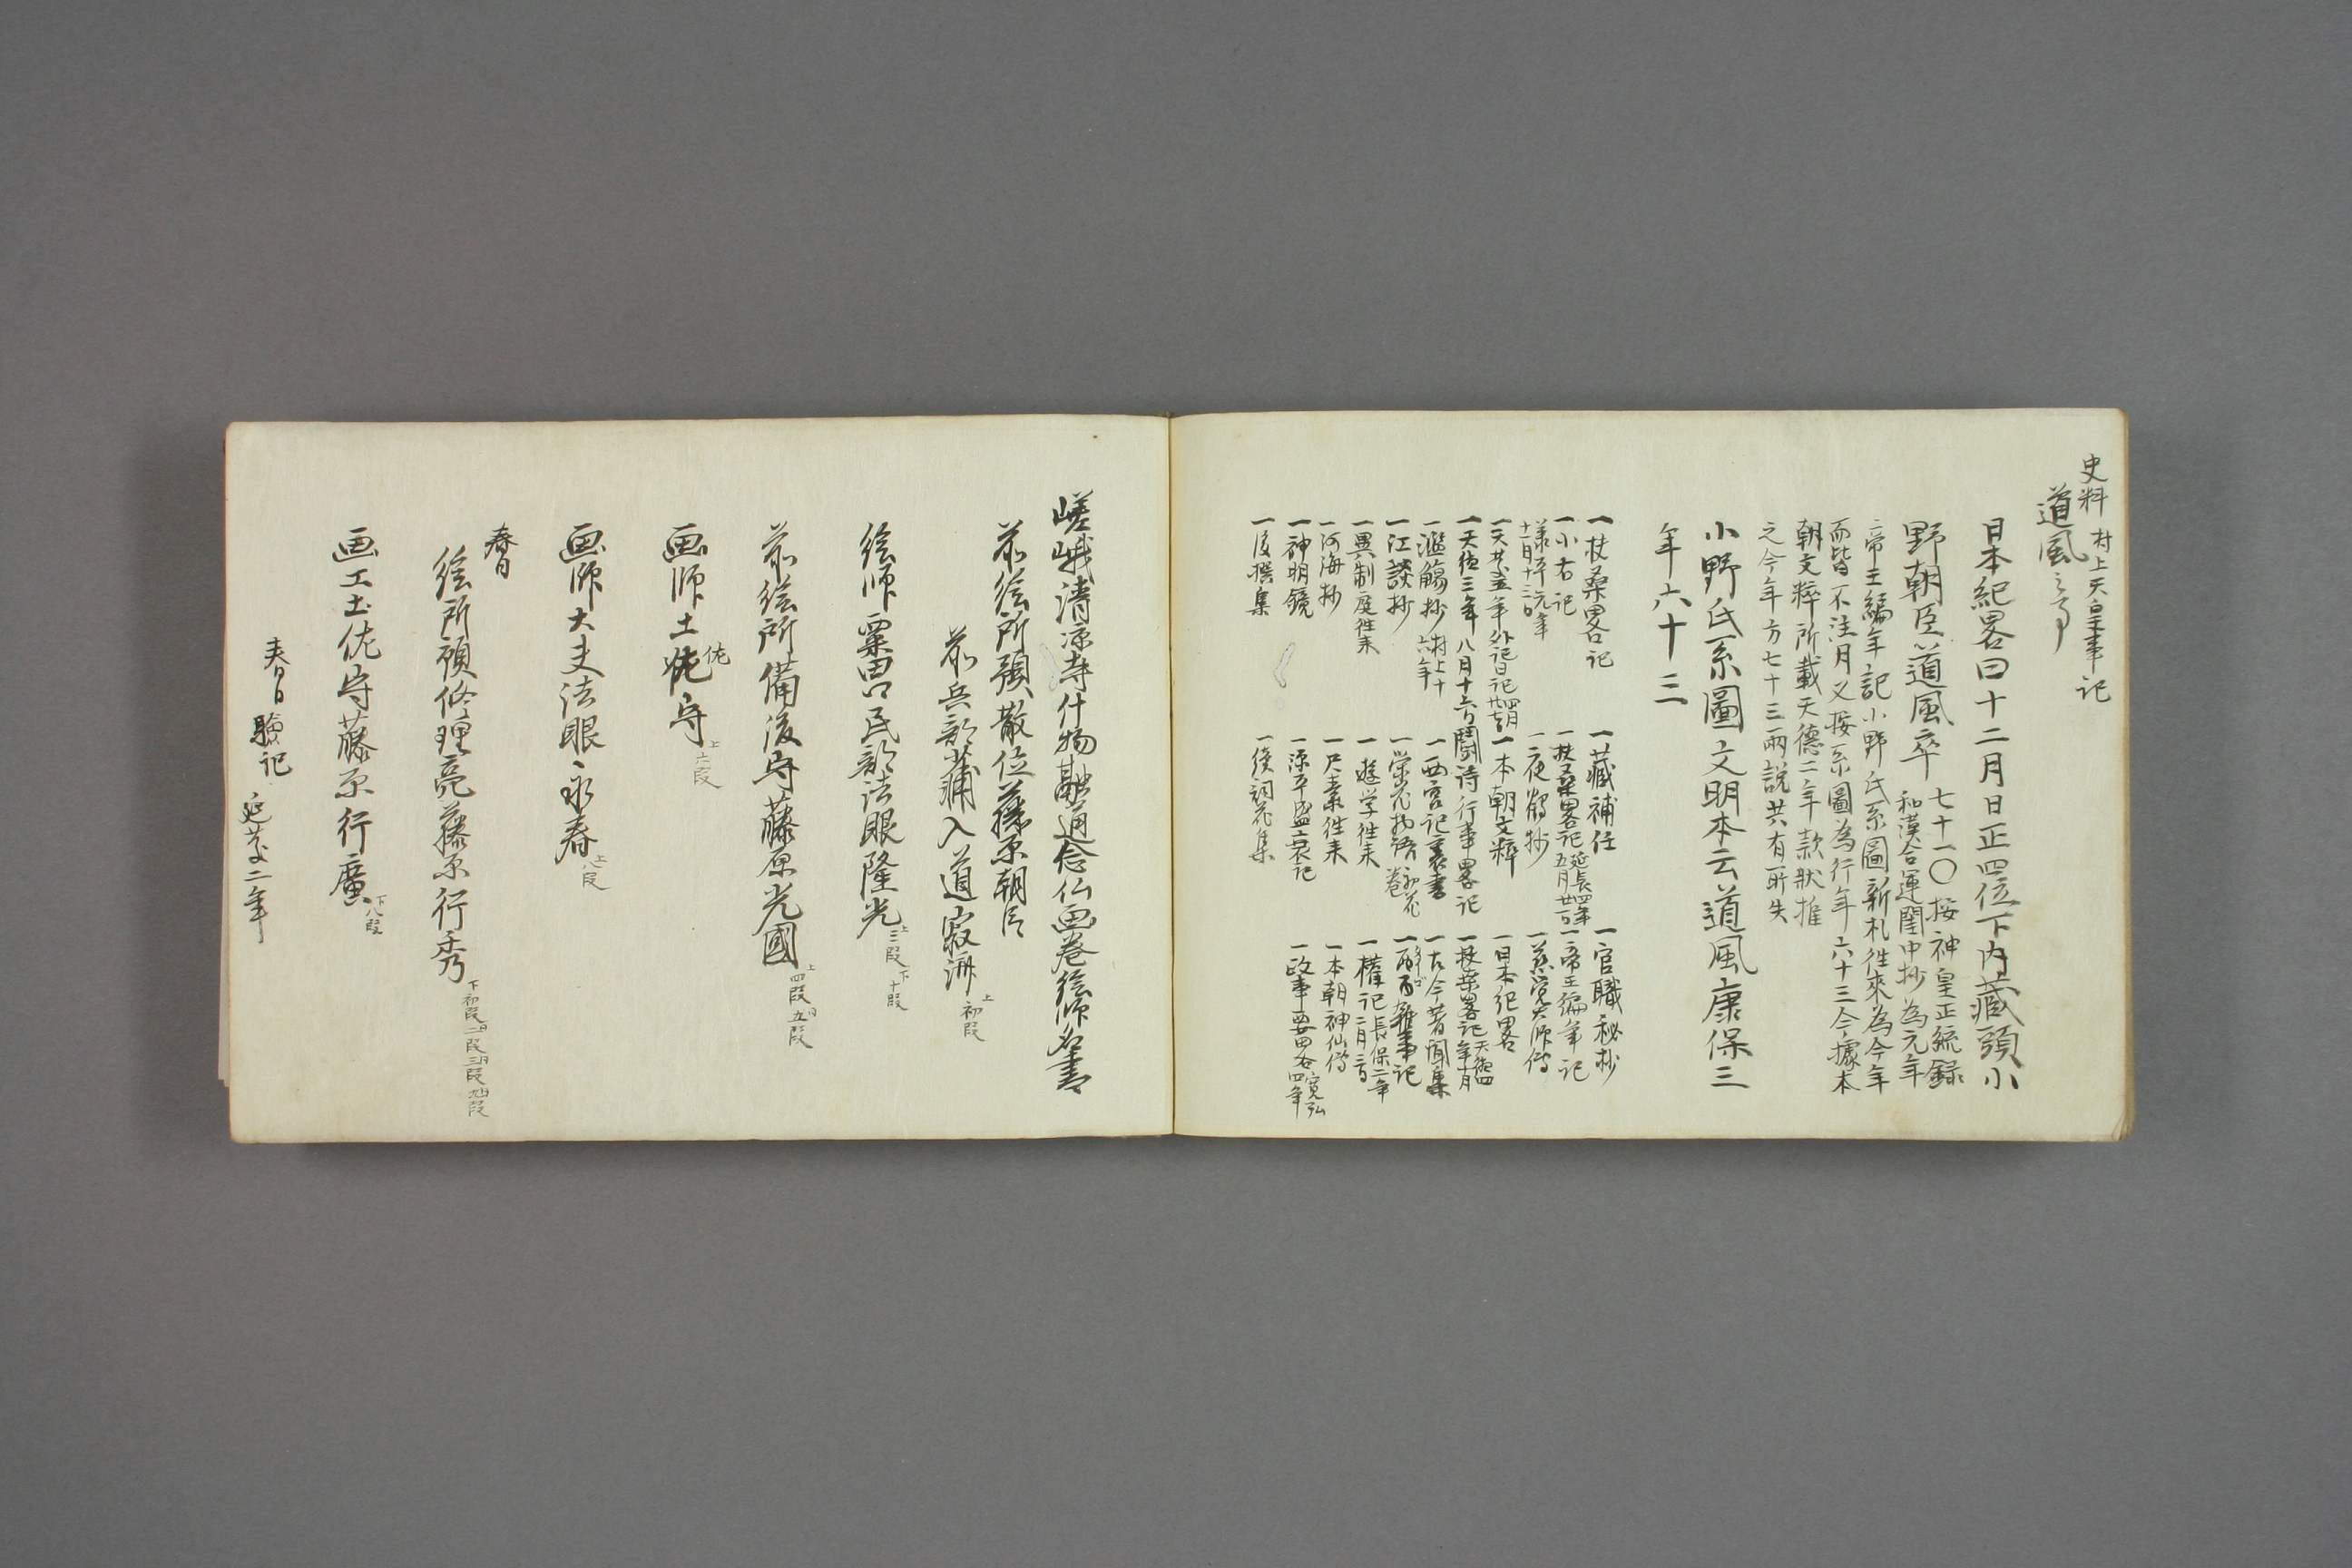 史料 村上天皇事記
道風之事
日本紀畧曰十二月日正四位下内藏頭小
野朝臣道風卒 七十一〇按神皇正統録
和漢合運閏中抄為元年
帝王編年記小野氏系圖新札往來為今年
而皆不注月又按系圖為行年六十三今據本
朝文粹所載天德二年款狀推
之今年方七十三兩説共有所失
小野氏系圖文明本云道風康保三
年六十三
一扶桑畧記
一藏補任
一官職秘抄
一小右記
一扶桑畧記 延長四年五月廿一日
一帝王編年記
一夜鶴抄
一慈覚大師傳
一本朝文粹
一日本紀畧
一天德三年八月十六日闘诗行事畧記
一扶桑畧記
一濫觴抄 村上十六年
一西宮記裏書
一古今著聞集
一江談抄
一栄花物語
一異制庭往来
一遊学往来
一權記 長保二年二月三日
一河海抄
一尺素往来
一本朝神仙傳
一神明鏡
一源平盛衰記
一政事要畧 寛弘四年
一後撰集
一後詞花集
嵯峨清凉寺什物融通念仏画巻絵師名書
前絵所預散位藤原朝臣
前兵部少輔入道寂済 上初段
絵师粟田口民部法眼隆光 上三段 下十段
前絵所備後守藤原光國 上四段 五段
画师土佐守 上六段
画师大夫法眼永春 上八段
春日
絵所預修理亮藤原行秀 下初段 二段 三段
画工土佐守藤原行廣 下八段
春日驗記 延慶二年